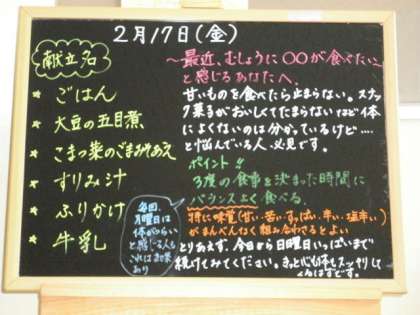 2月17日(金)
献立名
* ごはん
* 大豆の五目煮
* こまつ菜のごまみそあえ
* すりみ汁
* ふりかけ
* 牛乳
~最近、むしょうに〇〇が食べたい、
と感じるあなたへ、
甘いものを食べたら止まらない。スナッ
ク菓子がおいしくてたまらないほど体
によくないのは分かっているけど....
と悩んでいる人、必見です。
ポイント!!
3度の食事を決まった時間に
バランスよく食べる。
特に味覚(甘い・苦い・すっぱい・辛い・塩辛い)
がまんべんなく組み合わさるとよい
とりあえず、今日から日曜日いっぱいまで
続けてみてください。きっと心も体もスッキリして
くるはずです。
毎回、
月曜日は
体がだるい
と感じる人も
これは効果
あり